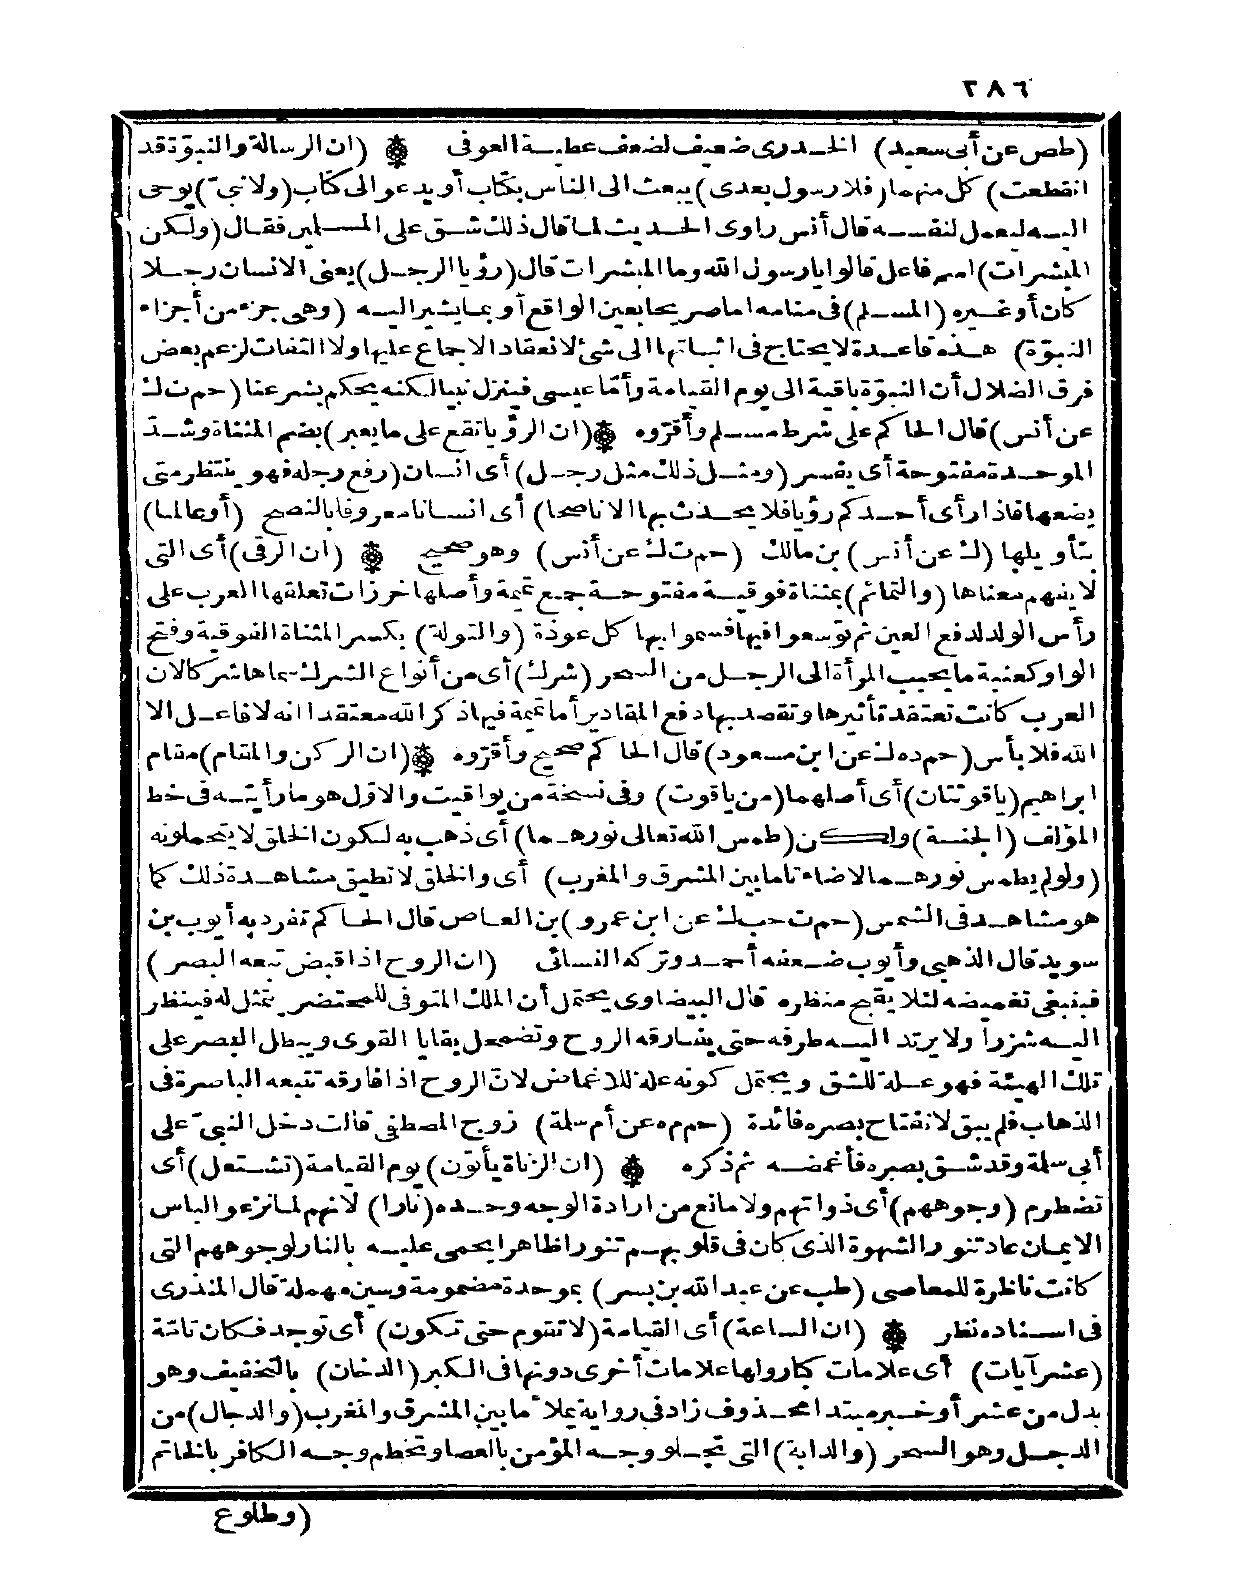 ٢٨٦
(طص عن أبى سعيد) الخدرى ضعيف لضعف عطية العوفى ❁ (ان الرسالة والنبوّة قد
انقطعت) كل منهما (فلا رسول بعدى) يبعث الى الناس بكتاب أو يدعو الى كتاب (ولا نبىّ) يوحى
اليه ليعمل لنفسه قال أنس راوى الحديث لما قال ذلك شق على المسلمين فقال (ولكن
المبشرات) اسم فاعل قالوا يا رسول الله وما المبشرات قال (رؤيا الرجل) يعنى الانسان رجلا
كان أو غيره (المسلم) فى منامه اما صريحا بعين الواقع أو بما يشير اليه (وهى جزء من أجزاء
النبوّة) هذه قاعدة لا يحتاج فى اثباتها الى شئ لانعقاد الاجماع عليها ولا التفات لزعم بعض
فرق الضلال أن النبوّة باقية الى يوم القيامة وأمّا عيسى فينزل نبيا لكنه يحكم بشرعنا (حم ت ك
عن أنس) قال الحاكم على شرط مسلم وأقرّوه ❁ (ان الرؤيا تقع على ما يعبر) بضم المثناة وشدّ
الموحدة مفتوحة أى يفسر (ومثل ذلك مثل رجل) أى انسان (رفع رجله فهو ينتظر متى
يضعها فاذا رأى أحدكم رؤيا فلا يحدث بها الا ناصحا) أى انسانا معروفا بالنصح (أو عالما)
بتأويلها (ك عن أنس) بن مالك (حم ت ك عن أنس) وهو صحيح ❁ (ان الرقى) أى التى
لا يفهم معناها (والتمائم) بمثناة فوقية مفتوحة جمع تميمة وأصلها خرزات تعلقها العرب على
رأس الولد لدفع العين ثم توسعوا فيها فسموا بها كل عوذة (والتولة) بكسر المثناة الفوقية وفتح
الواو كعنبة ما يحبب المرأة الى الرجل من السحر (شرك) أى من أنواع الشرك سماها شركا لان
العرب كانت تعتقد تأثيرها وتقصد بها دفع المقادير أما تميمة فيها ذكر الله معتقدا انه لا فاعل الا
الله فلا بأس (حم د ه ك عن ابن مسعود) قال الحاكم صحيح وأقرّوه ❁ (ان الركن والمقام) مقام
ابراهيم (ياقوتتان) أى أصلهما (من ياقوت) وفى نسخة من يواقيت والاوّل هو ما رأيته فى خط
المؤلف (الجنة) ولكن (طمس الله تعالى نورهما) أى ذهب به لكون الخلق لا يتحملونه
(ولو لم يطمس نورهما لاضاءتا ما بين المشرق والمغرب) أى والخلق لا تطيق مشاهدة ذلك كما
هو مشاهد فى الشمس (حم ت حب ك عن ابن عمرو) بن العاص قال الحاكم تفرد به أيوب بن
سويد قال الذهبى وأيوب ضعفه أحمد وتركه النسائى (ان الروح اذا قبض تبعه البصر)
فينبغى تغميضه لئلا يقبح منظره قال البيضاوى يحتمل أن الملك المتوفى للمحتضر يتمثل له فينظر
اليه شزرا ولا يرتد اليه طرفه حتى يفارقه الروح وتضمحل بقايا القوى ويبطل البصر على
تلك الهيئة فهو علة للشق ويحتمل كونه علة للاغماض لانّ الروح اذا فارقه تتبعه الباصرة فى
الذهاب فلم يبق لانفتاح بصره فائدة (حم م ه عن أم سلمة) زوج المصطفى قالت دخل النبىّ على
أبى سلمة وقد شق بصره فأغمضه ثم ذكره ❁ (ان الزناة يأتون) يوم القيامة (تشتعل) أى
تضطرم (وجوههم) أى ذواتهم ولا مانع من ارادة الوجه وحده (نارا) لانهم لما نزعوا لباس
الايمان عاد تنور الشهوة الذى كان فى قلوبهم تنورا ظاهرا يحمى عليه بالنار لوجوههم التى
كانت ناظرة للمعاصى (طب عن عبد الله بن بسر) بموحدة مضمومة وسين مهملة قال المنذرى
فى اسناده نظر ❁ (ان الساعة) أى القيامة (لا تقوم حتى تكون) أى توجد فكان تامّة
(عشر آيات) أى علامات كبار ولها علامات أخرى دونها فى الكبر (الدخان) بالتخفيف وهو
بدل من عشر أو خبر مبتدا محذوف زاد فى رواية يملأ ما بين المشرق والمغرب (والدجال) من
الدجل وهو السحر (والدابة) التى تجلو وجه المؤمن بالعصا وتخطم وجه الكافر بالخاتم
(وطلوع